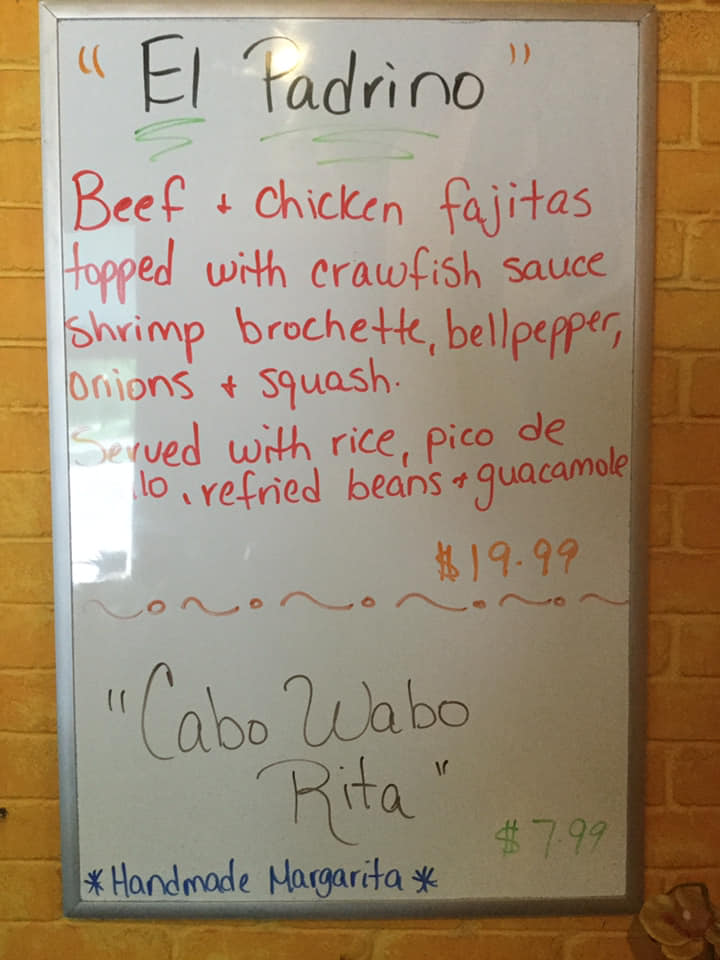 "El Padrino"
Beef + chicken fajitas
topped with crawfish sauce
shrimp brochette, bellpepper,
onions + squash.
Served with rice, pico de
llo, refried beans + guacamole
$19.99
"Cabo Wabo
Rita"
$7.99
*Handmade Margarita*